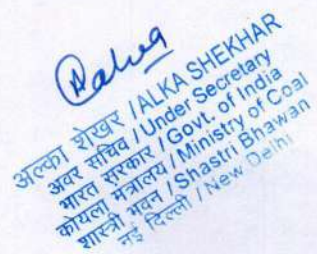 अल्का शेखर / ALKA SHEKHAR
अवर सचिव / Under Secretary
भारत सरकार / Govt. of India
कोयला मंत्रालय / Ministry of Coal
शास्त्री भवन / Shastri Bhawan
नई दिल्ली / New Delhi